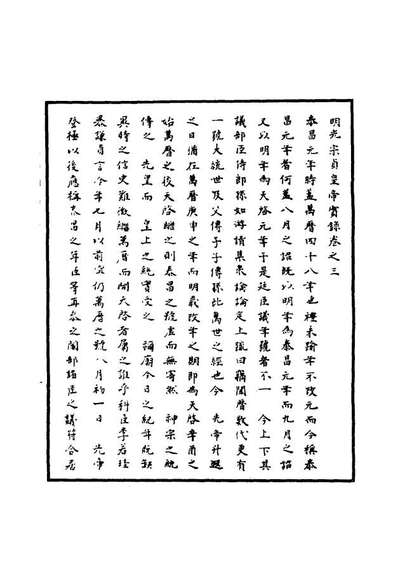 明光宗貞皇帝實錄卷之三
泰昌元年時蓋萬曆四十八年也禮未踰年不改元而今稱泰
昌元年者何蓋八月之詔既以明年為泰昌元年而九月之詔
又以明年為天啟元年于是廷臣議年號者不一 今上下其
議部臣侍郎孫如游請集眾論論定上疏曰竊聞曆數代更有
一號大統世及父傳子子傳孫此萬世之經也今 先帝升遐
之日猶在萬曆庚申之年而明歲改年之期即為天啟辛酉之
始萬曆之後天啟繼之則泰昌之號虛而無寄然 神宗之統
傳之 先皇而 皇上之統實受之 廟今日之紀年既缺
異時之信史難徵繼萬曆而開天啟者屬之誰乎科臣李若珪
言今年七月以前宜仍萬曆之號八月初一日 先帝
登極以後應稱泰昌之年臣等再參之閣部諸臣之議符合居